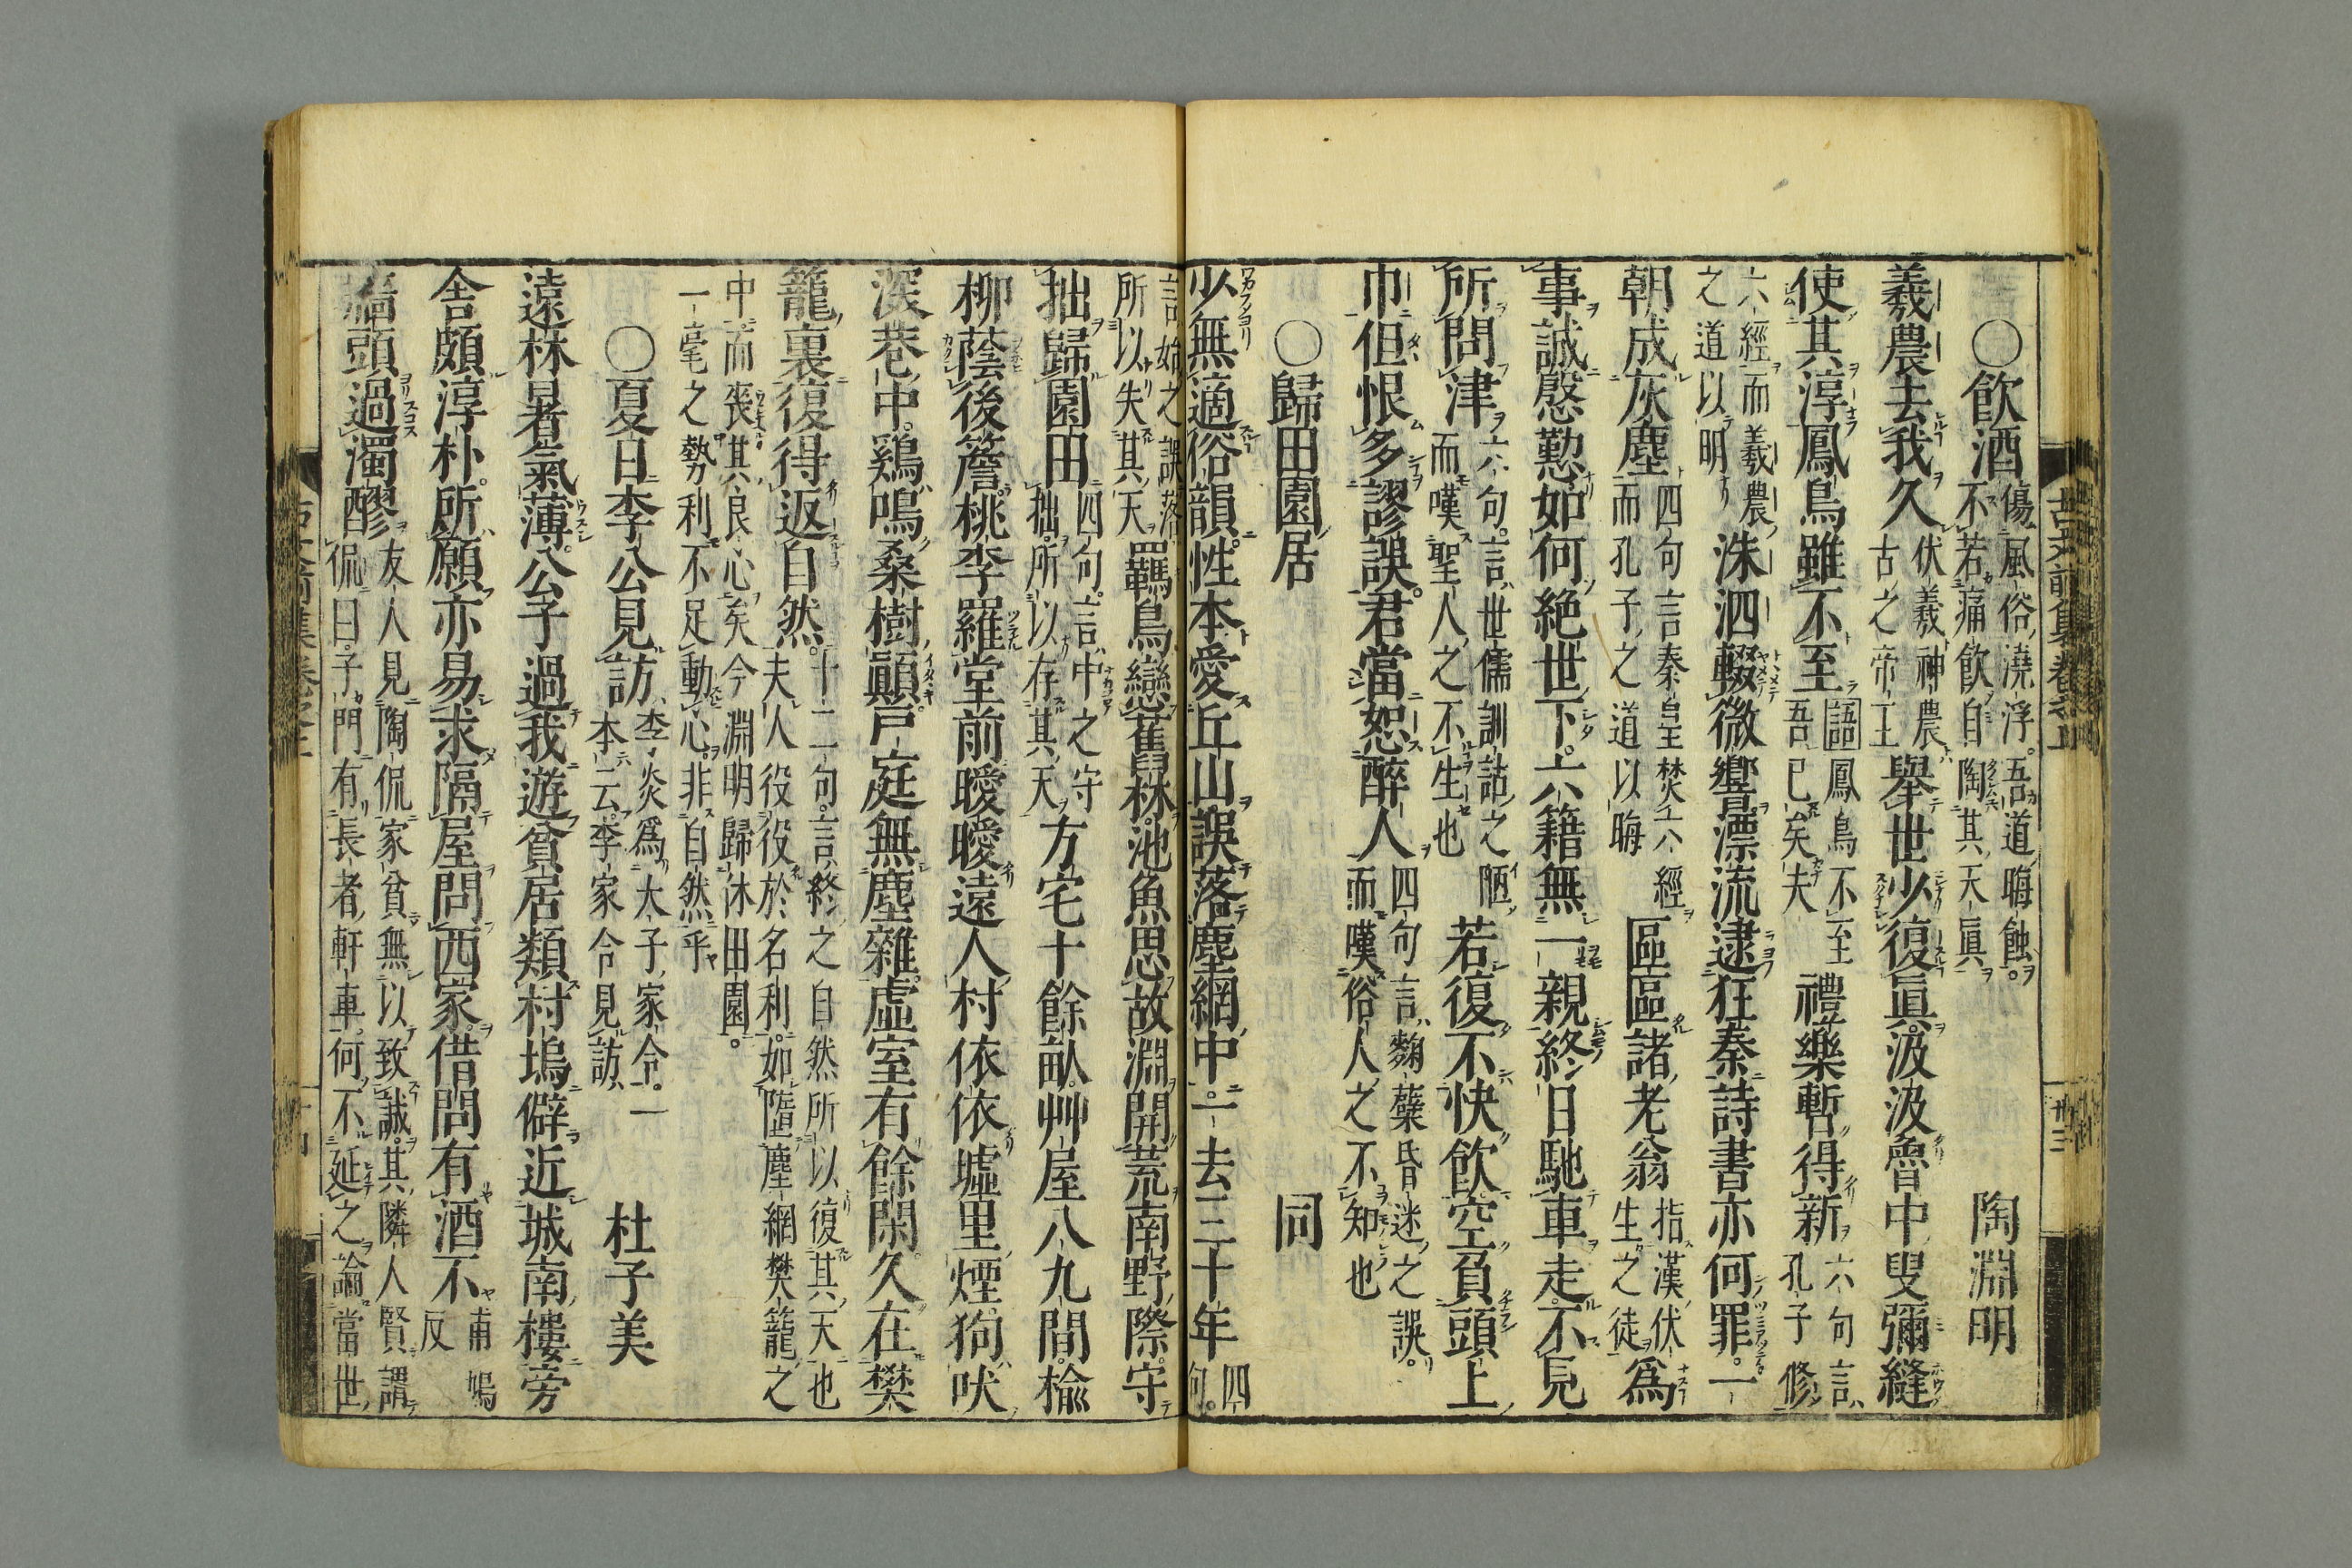 ○飲酒 傷風俗澆浮吾道晦蝕 不若痛飲自陶其天眞 陶淵明
羲農去我久 伏羲神農 古之帝王 舉世少復眞汲汲魯中叟彌縫
使其淳鳳鳥雖不至 語鳳鳥不至 吾已矣夫 禮樂暫得新 六句言 孔子修
六經而羲農 之道以明 洙泗輟微響漂流逮狂秦詩書亦何罪一
朝成灰塵 四句言秦皇焚六經 而孔子之道以晦 區區諸老翁 指漢伏 生之徒 爲
事誠慇懃如何絶世下六籍無一親終日馳車走不見
所問津 六句言世儒訓詁之陋 而嘆聖人之不生也 若復不快飲空負頭上
巾但恨多謬誤君當恕醉人 四句言麴蘖昏迷之誤 而嘆俗人之不知也
○歸田園居 同
少無適俗韻性本愛丘山誤落塵網中一去三十年 四句
言始之誤落 所以失其天 羈鳥戀舊林池魚思故淵開荒南野際守
拙歸園田 四句言中之守 拙所以存其天 方宅十餘畝艸屋八九間楡
柳蔭後簷桃李羅堂前曖曖遠人村依依墟里煙狗吠
深巷中鷄鳴桑樹顚戸庭無塵雜虛室有餘閑久在樊
籠裏復得返自然 十二句言終之自然所以復其天也 夫人役役於名利如墮塵網樊籠之
中而喪其良心矣今淵明歸休田園 一毫之勢利不足動心非自然乎
○夏日李公見訪 李炎爲太子家令一 本云李家令見訪 杜子美
遠林暑氣薄公子過我遊貧居類村塢僻近城南樓旁
舍頗淳朴所願亦易求隔屋問西家借問有酒不 甫鳩 反
墻頭過濁醪 友人見陶侃家貧無以致誠其隣人賢謂 侃曰子門有長者軒車何不延之論當世
古文前集卷之上
卅三